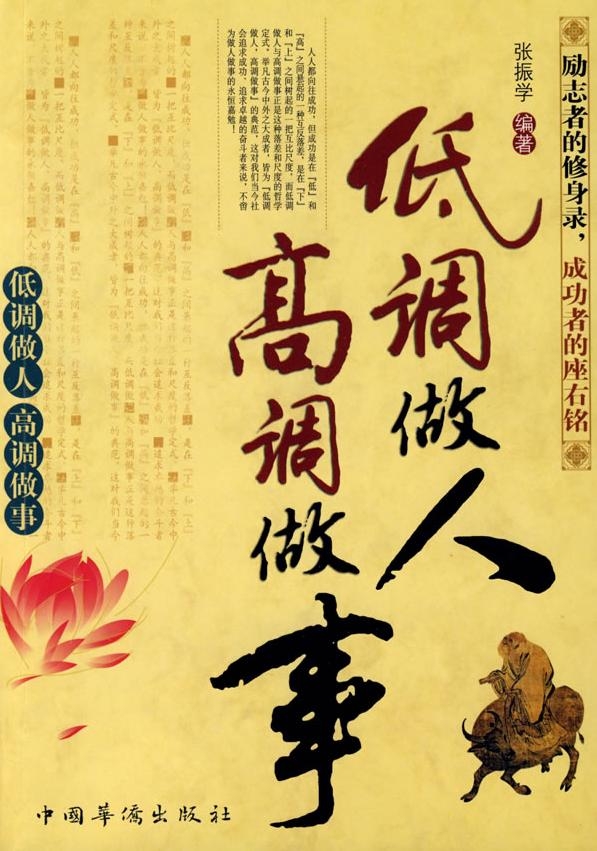 励志者的修身录，成功者的座右铭
张振学 编著
低调做人
高调做事
人人都向往成功，但成功是在『低』和
『高』之间悬起的一种互反落差，是在『下』
和『上』之间树起的一把互比尺度，而低调
做人与高调做事正是这种落差和尺度的哲学
定式，举凡古今中外之大成者，皆为『低调
做人，高调做事』的典范，这对我们当今社
会追求成功、追求卓越的奋斗者来说，不啻
为做人做事的永恒嘉勉！
低调做人 高调做事
中國華僑出版社